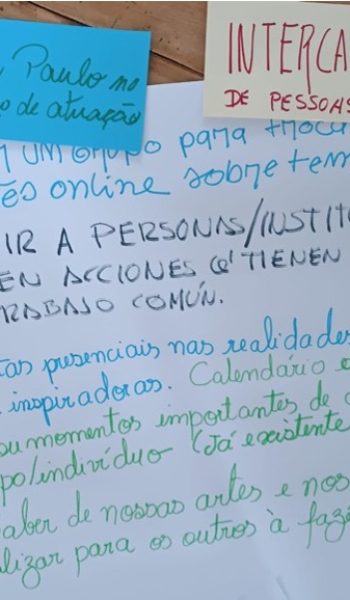 Paulo no
o de atuação
INTERCA
DE PESSOAS
um grupo para troca
es online sobre tem
IR A PERSONAS/INSTIT
EN ACCIONES Q' TIENEN
RABAJO COMÚN.
tas presenciais nas realidades
inspiradoras. Calendário e
su momentos importantes de c
po/indivíduo (já existente
aber de nossas artes e nos
alizar para os outros à fazê